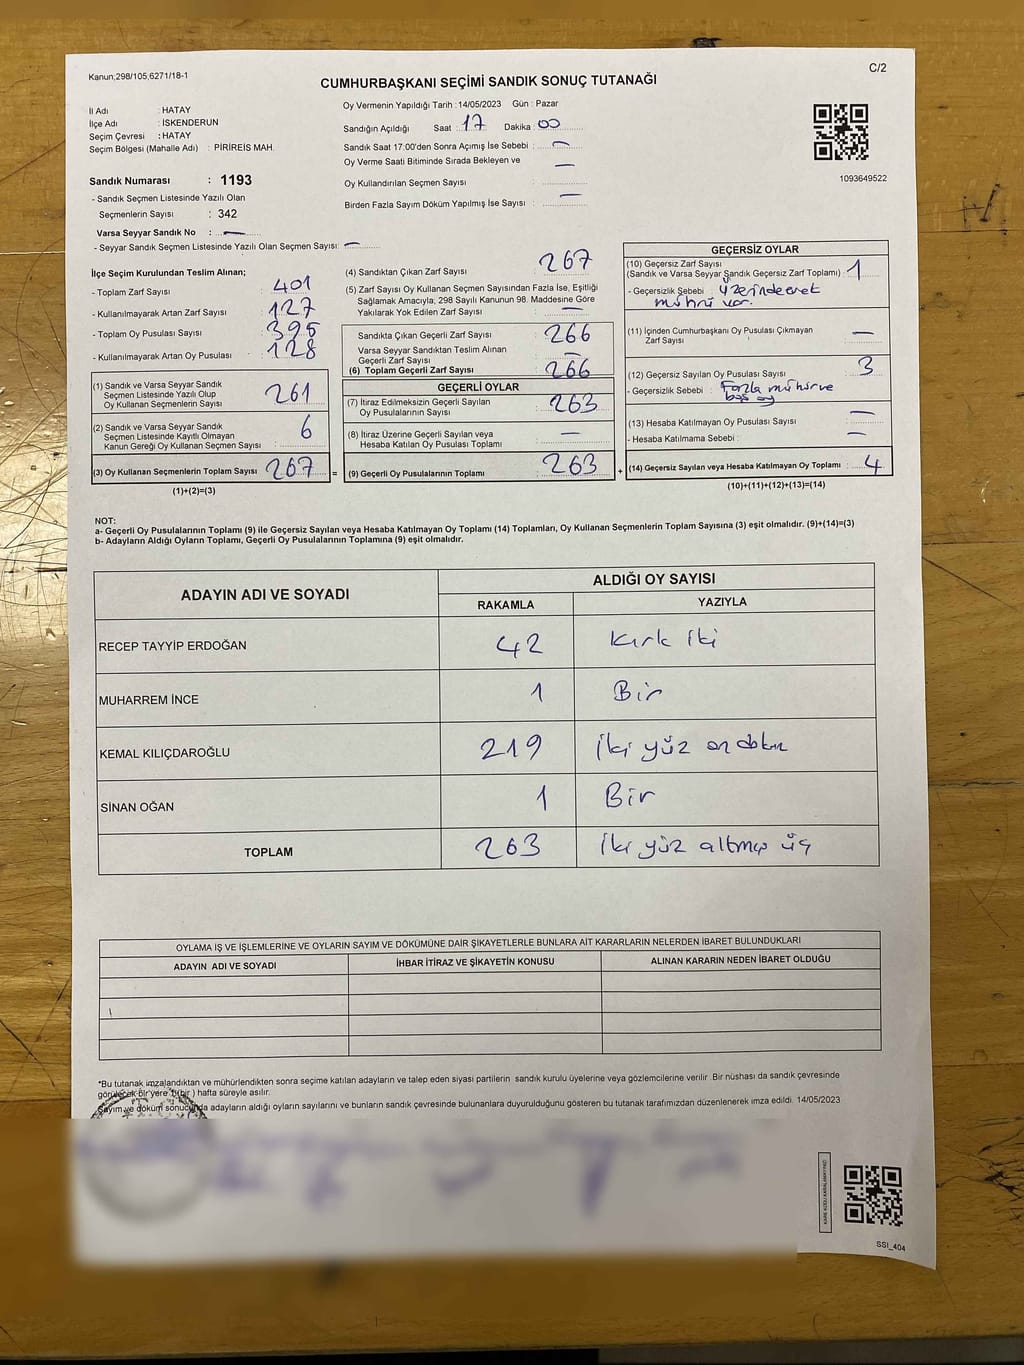 Kanun;298/105;6271/18-1
C/2
CUMHURBAŞKANI SEÇİMİ SANDIK SONUÇ TUTANAĞI
İl Adı : HATAY
İlçe Adı : İSKENDERUN
Seçim Çevresi : HATAY
Seçim Bölgesi (Mahalle Adı) : PİRİREİS MAH.
Oy Vermenin Yapıldığı Tarih : 14/05/2023 Gün : Pazar
Sandığın Açıldığı Saat : 17 Dakika : 00
Sandık Saat 17:00'den Sonra Açımış İse Sebebi : —
Oy Verme Saati Bitiminde Sırada Bekleyen ve —
Oy Kullandırılan Seçmen Sayısı :
Birden Fazla Sayım Döküm Yapılmış İse Sayısı : —
1093649522
Sandık Numarası : 1193
- Sandık Seçmen Listesinde Yazılı Olan
Seçmenlerin Sayısı : 342
Varsa Seyyar Sandık No : —
- Seyyar Sandık Seçmen Listesinde Yazılı Olan Seçmen Sayısı: —
İlçe Seçim Kurulundan Teslim Alınan;
- Toplam Zarf Sayısı : 401
- Kullanılmayarak Artan Zarf Sayısı : 127
- Toplam Oy Pusulası Sayısı : 395
- Kullanılmayarak Artan Oy Pusulası : 128
(1) Sandık ve Varsa Seyyar Sandık
Seçmen Listesinde Yazılı Olup
Oy Kullanan Seçmenlerin Sayısı : 261
(2) Sandık ve Varsa Seyyar Sandık
Seçmen Listesinde Kayıtlı Olmayan
Kanun Gereği Oy Kullanan Seçmen Sayısı : 6
(3) Oy Kullanan Seçmenlerin Toplam Sayısı : 267 =
(1)+(2)=(3)
(4) Sandıktan Çıkan Zarf Sayısı : 267
(5) Zarf Sayısı Oy Kullanan Seçmen Sayısından Fazla İse, Eşitliği
Sağlamak Amacıyla, 298 Sayılı Kanunun 98. Maddesine Göre
Yakılarak Yok Edilen Zarf Sayısı : —
Sandıkta Çıkan Geçerli Zarf Sayısı : 266
Varsa Seyyar Sandıktan Teslim Alınan
Geçerli Zarf Sayısı : —
(6) Toplam Geçerli Zarf Sayısı : 266
GEÇERLİ OYLAR
(7) İtiraz Edilmeksizin Geçerli Sayılan
Oy Pusulalarının Sayısı : 263
(8) İtiraz Üzerine Geçerli Sayılan veya
Hesaba Katılan Oy Pusulası Toplamı : —
(9) Geçerli Oy Pusulalarının Toplamı : 263 +
GEÇERSİZ OYLAR
(10) Geçersiz Zarf Sayısı
(Sandık ve Varsa Seyyar Sandık Geçersiz Zarf Toplamı) : 1
- Geçersizlik Sebebi : Üzerinde evet
mührü var.
(11) İçinden Cumhurbaşkanı Oy Pusulası Çıkmayan
Zarf Sayısı : —
(12) Geçersiz Sayılan Oy Pusulası Sayısı : 3
- Geçersizlik Sebebi : Fazla mühür ve
boş oy
(13) Hesaba Katılmayan Oy Pusulası Sayısı : —
- Hesaba Katılmama Sebebi : —
(14) Geçersiz Sayılan veya Hesaba Katılmayan Oy Toplamı : 4
(10)+(11)+(12)+(13)=(14)
NOT:
a- Geçerli Oy Pusulalarının Toplamı (9) ile Geçersiz Sayılan veya Hesaba Katılmayan Oy Toplamı (14) Toplamları, Oy Kullanan Seçmenlerin Toplam Sayısına (3) eşit olmalıdır. (9)+(14)=(3)
b- Adayların Aldığı Oyların Toplamı, Geçerli Oy Pusulalarının Toplamına (9) eşit olmalıdır.
ADAYIN ADI VE SOYADI
ALDIĞI OY SAYISI
RAKAMLA YAZIYLA
RECEP TAYYİP ERDOĞAN 42 Kırk iki
MUHARREM İNCE 1 Bir
KEMAL KILIÇDAROĞLU 219 İki yüz on dokuz
SİNAN OĞAN 1 Bir
TOPLAM 263 İki yüz altmış üç
OYLAMA İŞ VE İŞLEMLERİNE VE OYLARIN SAYIM VE DÖKÜMÜNE DAİR ŞİKAYETLERLE BUNLARA AİT KARARLARIN NELERDEN İBARET BULUNDUKLARI
ADAYIN ADI VE SOYADI İHBAR İTİRAZ VE ŞİKAYETİN KONUSU ALINAN KARARIN NEDEN İBARET OLDUĞU
*Bu tutanak imzalandıktan ve mühürlendikten sonra seçime katılan adayların ve talep eden siyasi partilerin sandık kurulu üyelerine veya gözlemcilerine verilir. Bir nüshası da sandık çevresinde
görülecek bir yere 1(bir) hafta süreyle asılır.
Sayım ve döküm sonucunda adayların aldığı oyların sayılarını ve bunların sandık çevresinde bulunanlara duyurulduğunu gösteren bu tutanak tarafımızdan düzenlenerek imza edildi. 14/05/2023
KARE KODU KARALAMAYINIZ!
SSI_404